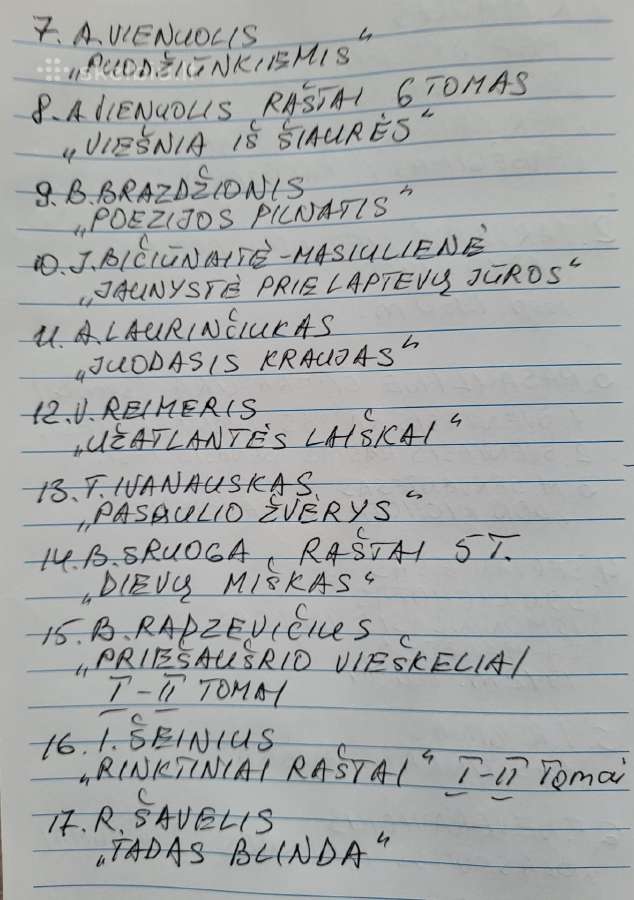 7. A. VIENUOLIS
„PUODŽIŪNKIEMIS“
8. A VIENUOLIS RAŠTAI 6 TOMAS
„VIEŠNIA IŠ ŠIAURĖS“
9. B. BRAZDŽIONIS
„POEZIJOS PILNATIS“
10. J. BIČIŪNAITĖ-MASIULIENĖ
„JAUNYSTĖ PRIE LAPTEVŲ JŪROS“
11. A. LAURINČIUKAS
„JUODASIS KRAUJAS“
12. V. REIMERIS
„UŽATLANTĖS LAIŠKAI“
13. T. IVANAUSKAS
„PASAULIO ŽVĖRYS“
14. B. SRUOGA, RAŠTAI 5 T.
„DIEVŲ MIŠKAS“
15. B. RADZEVIČIUS
„PRIEŠAUŠRIO VIEŠKELIAI
I-II TOMAI
16. I. ŠEINIUS
„RINKTINIAI RAŠTAI“ I-II Tomai
17. R. ŠAVELIS
„TADAS BLINDA“